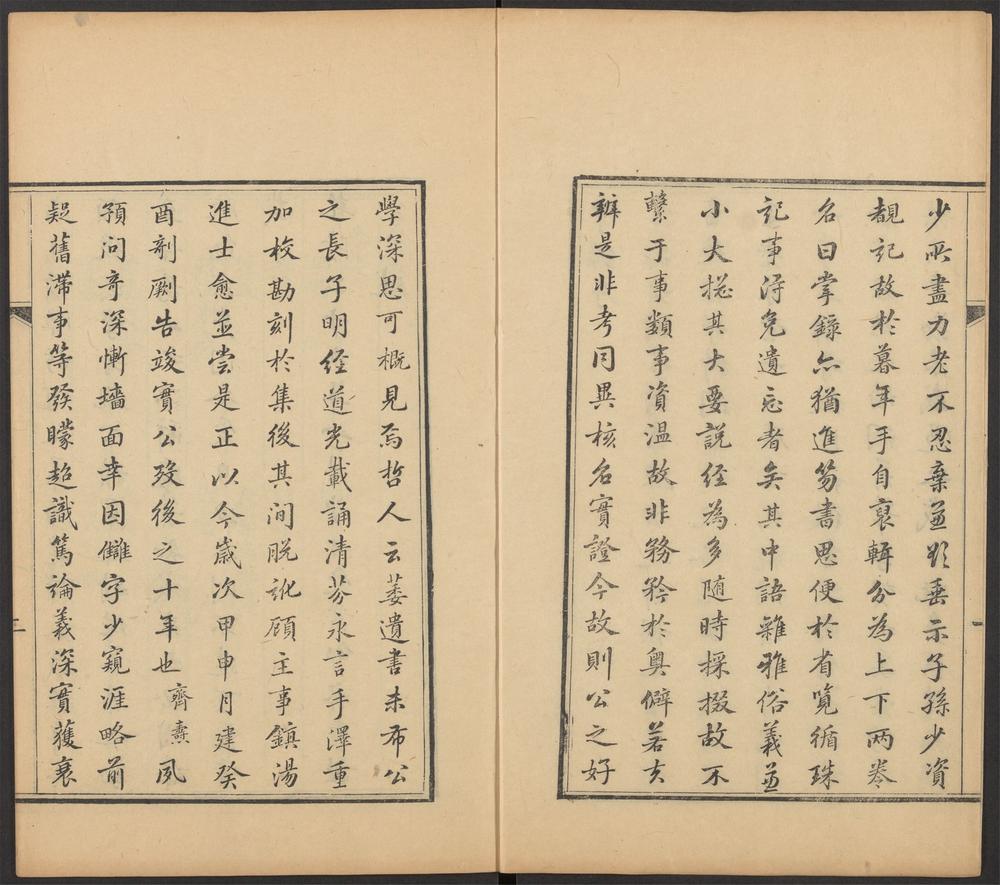 少所盡力老不忍棄並欲垂示子孫少資
覩記故於暮年手自裒輯分為上下兩卷
名曰掌錄亦猶進笏書思便於省覽循珠
記事浔免遺忘者矣其中語雜雅俗義並
小大揔其大要說經為多随時採掇故不
繫于事類事資溫故非務矜於奧僻若夫
辨是非考同異核名實證今故則公之好
學深思可概見焉哲人云萎遺書未布公
之長子明經道光載誦清芬永言手澤重
加校勘刻於集後其間脫訛顧主事鎮湯
進士愈並尝是正以今歲次甲申月建癸
酉剞劂告竣實公歿後之十年也齊燾夙
預問奇深慚墻面幸因讎字少窺涯略前
疑舊滯事等發矇超識篤論義深實獲衰
二
一